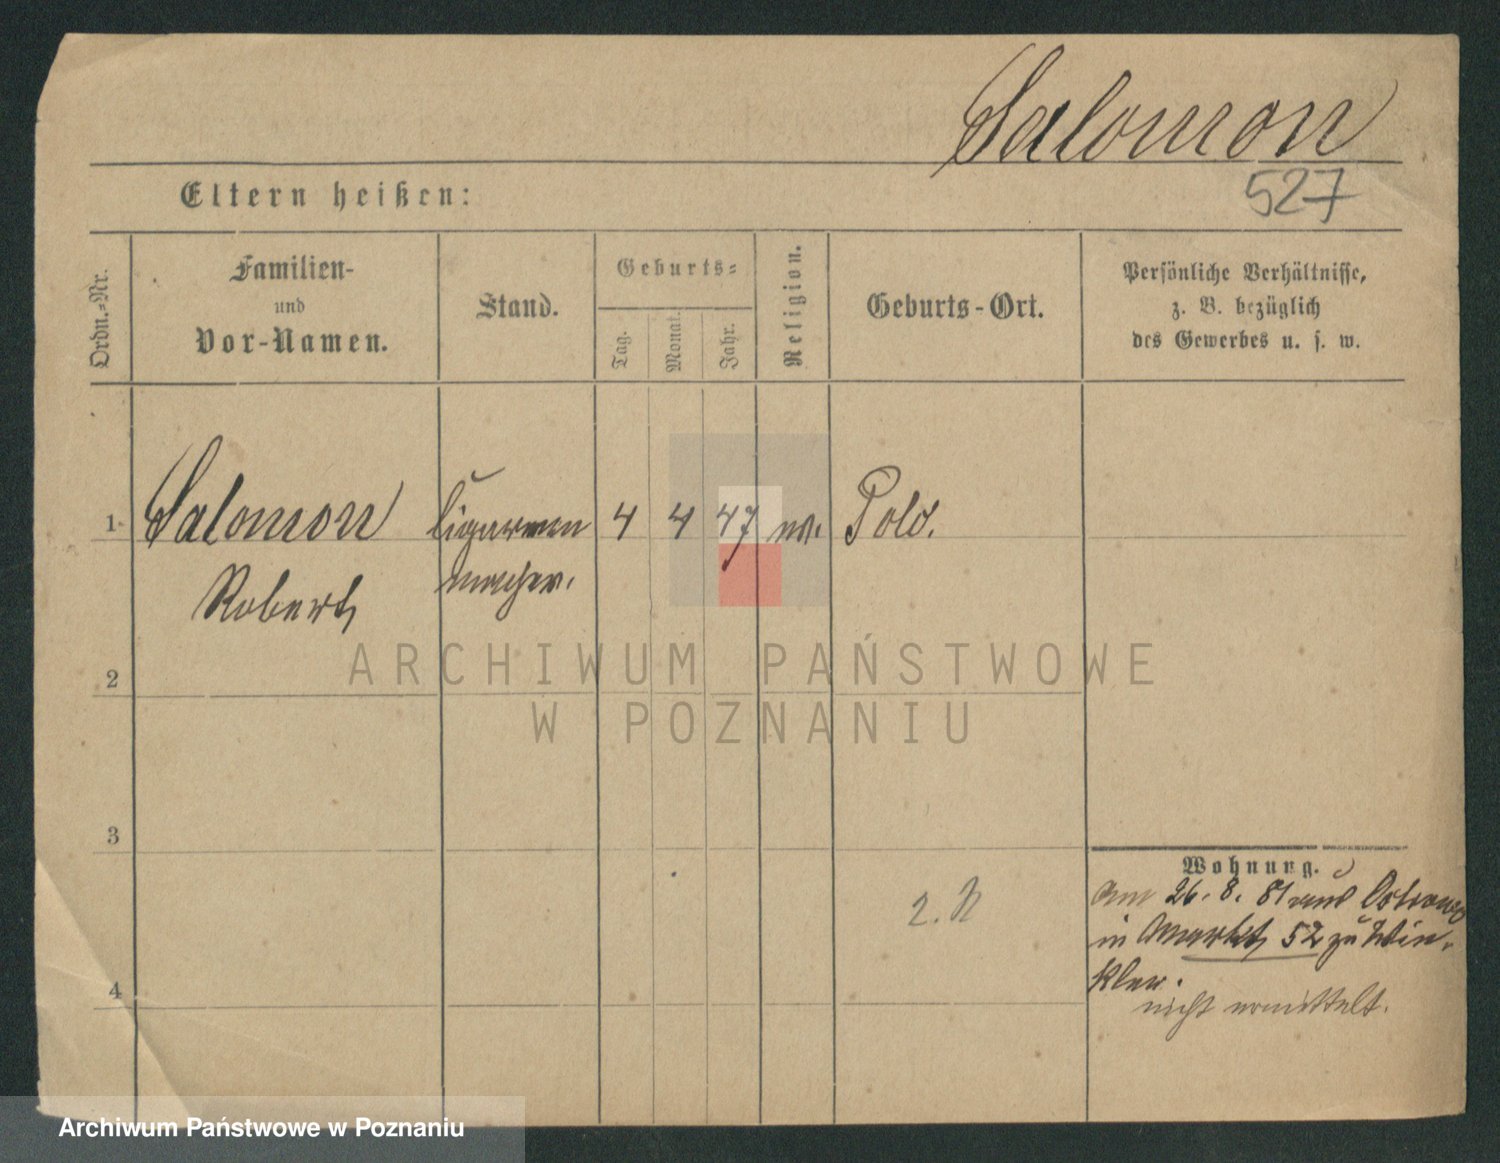 Salomon
527
Eltern heißen:
Ordn.-Nr.
Familien-
und
Vor-Namen.
Stand.
Geburts-
Tag.
Monat.
Jahr.
Religion.
Geburts-Ort.
Persönliche Verhältnisse,
z. B. bezüglich
des Gewerbes u. s. w.
1
Salomon
Robert
Cigarren
macher.
4
4
47
Pold.
2
3
4
2.
Wohnung.
Am 26. 8. 81 aus Ostrowo
in Markt 52 zu Win-
kler.
nicht ermittelt.
ARCHIWUM PAŃSTWOWE
W POZNANIU
Archiwum Państwowe w Poznaniu